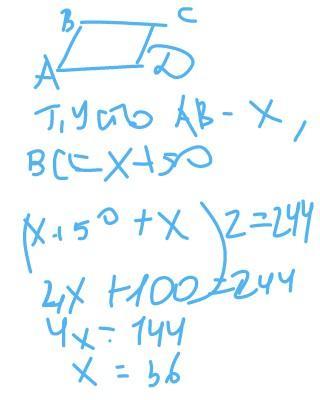 B C
A D
Пусть AB - x,
BC = x + 50
(x + 50 + x) 2 = 244
4x + 100 = 244
4x = 144
x = 36